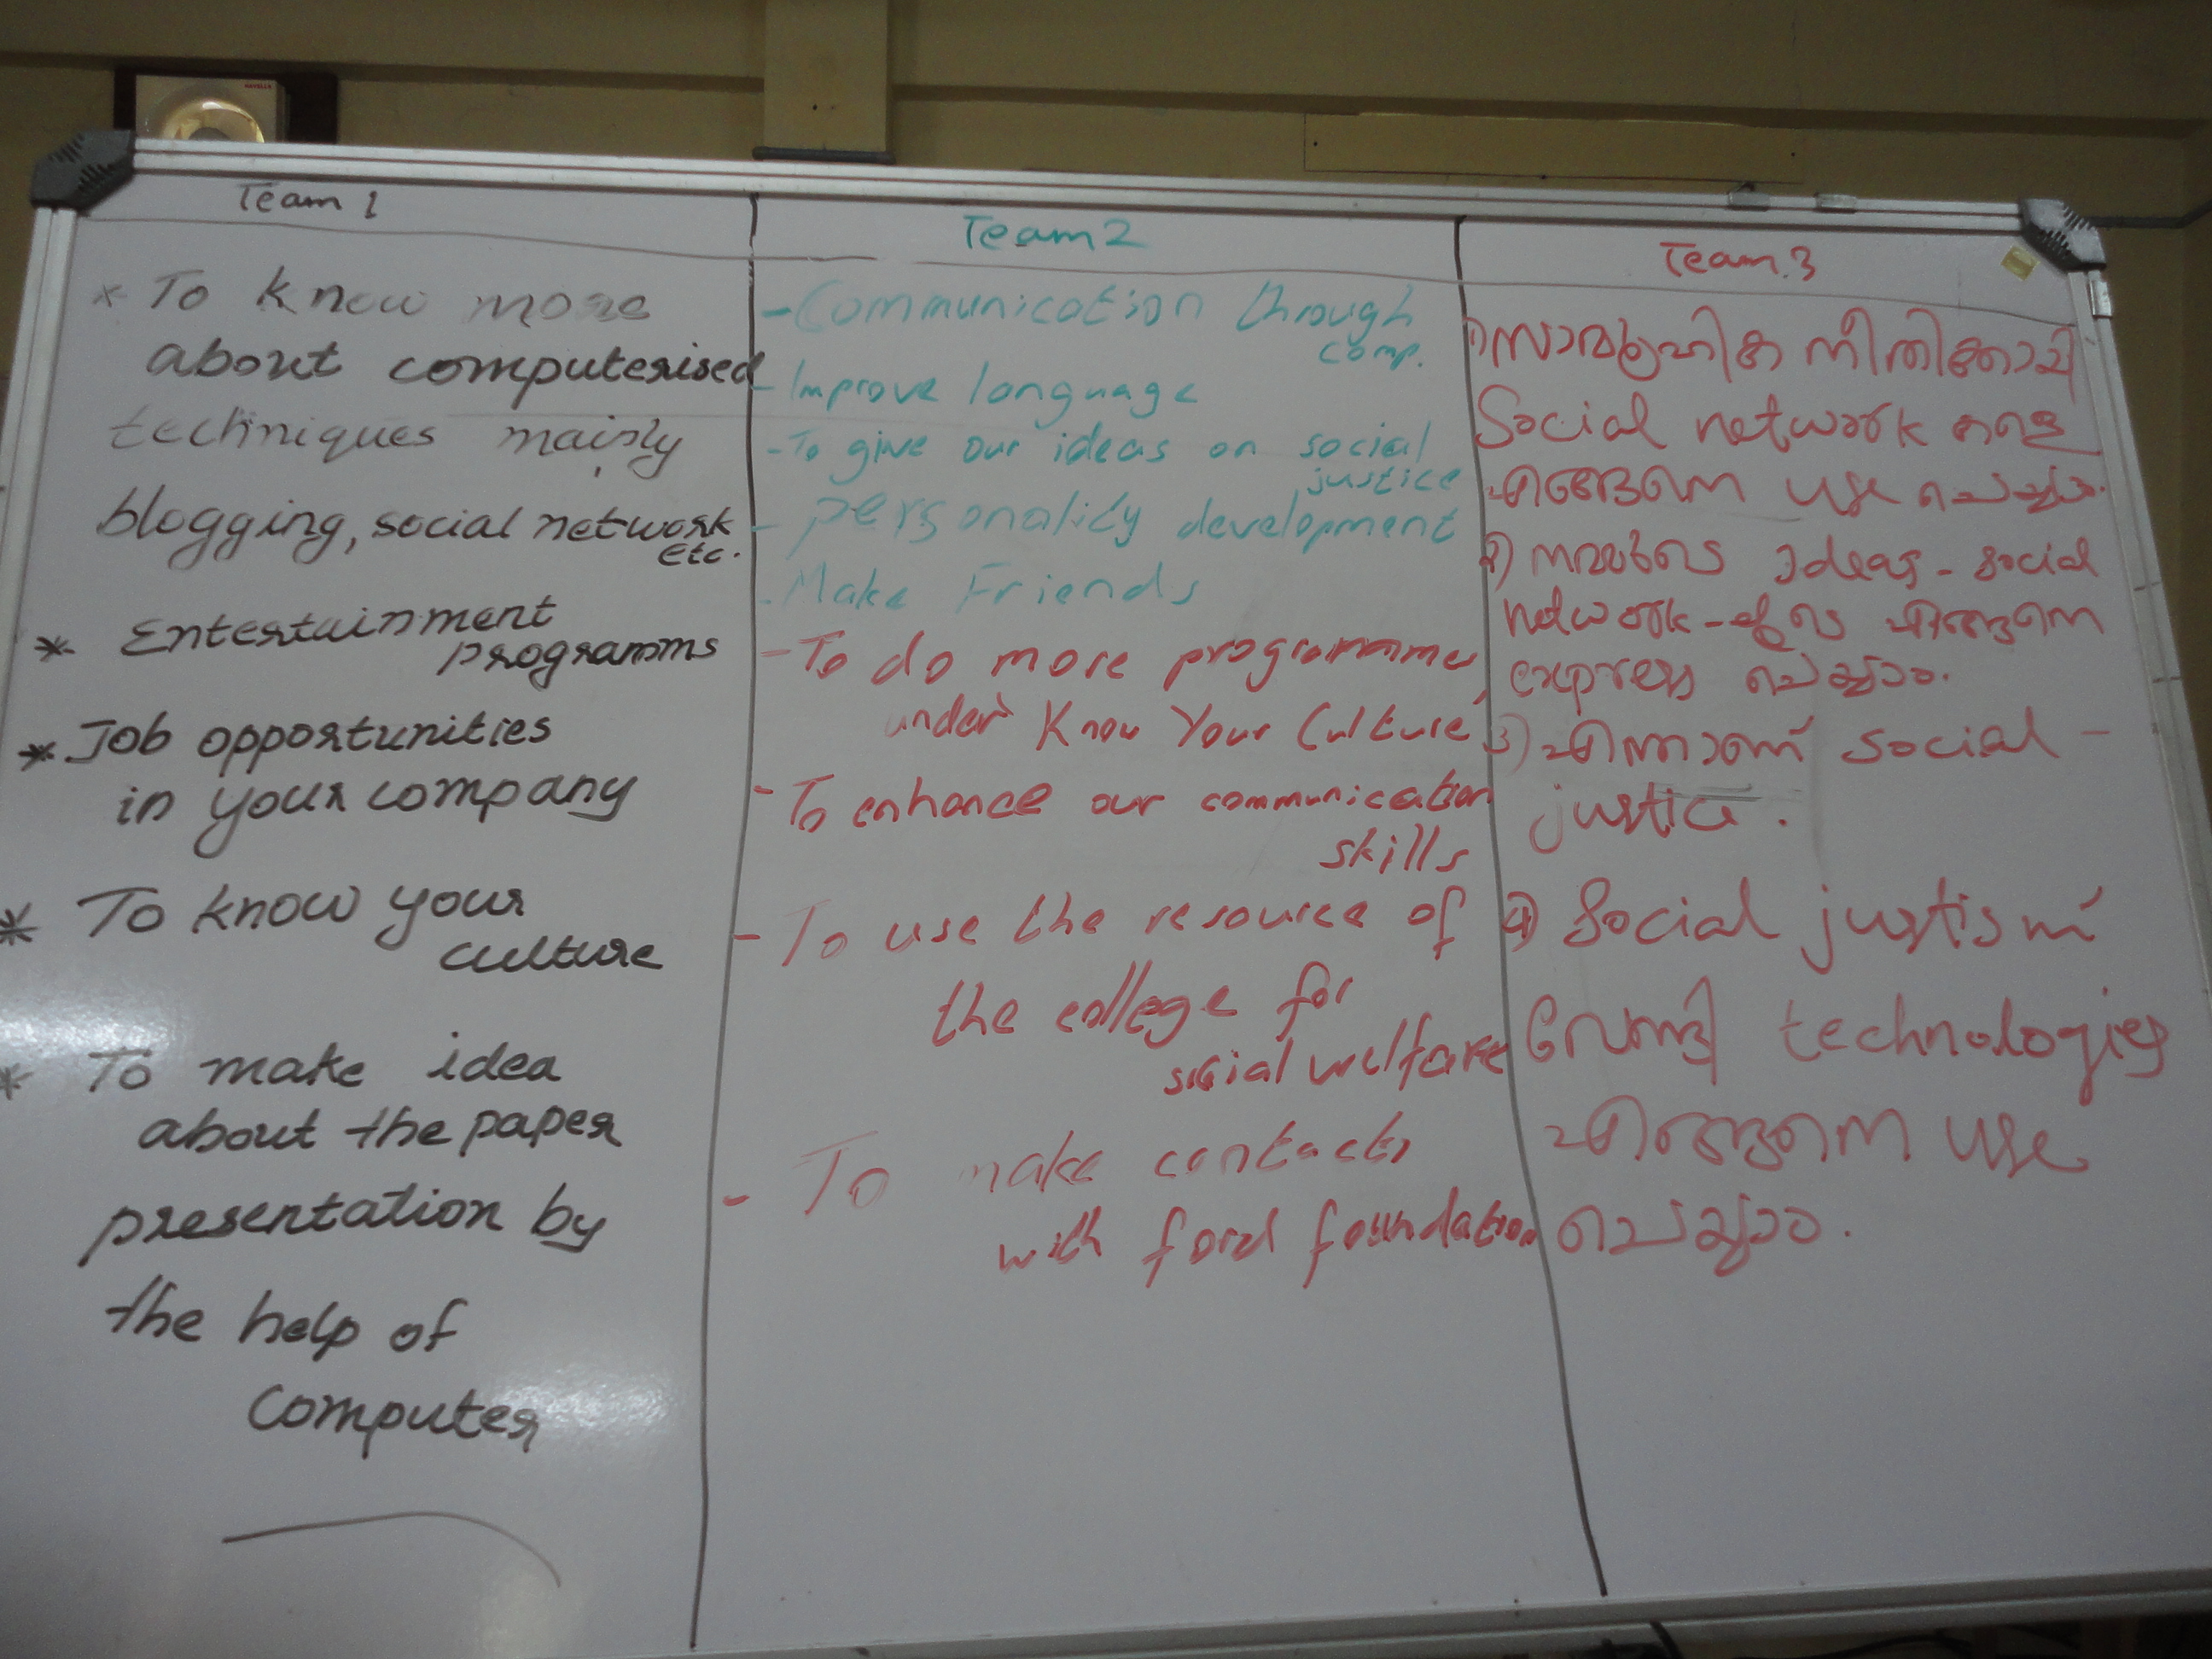 Team 1
* To know more
about computerised
techniques mainly
blogging, social network
etc.
* Entertainment
programms
* Job opportunities
in your company
* To know your
culture
* To make idea
about the paper
presentation by
the help of
computer
Team 2
- Communication through
comp.
- Improve language
- To give our ideas on social
justice
- personality development
- Make Friends
- To do more programmes
under 'Know Your Culture'
- To enhance our communication
skills
- To use the resource of
the college for
social welfare
- To make contacts
with ford foundation
Team.3
1) സാമൂഹിക നീതിക്കായി
Social network കളെ
എങ്ങനെ use ചെയ്യാം.
2) നമ്മുടെ Ideas - social
network-ലൂടെ എങ്ങനെ
express ചെയ്യാം.
3) എന്താണ് social -
justice.
4) Social justisന്
വേണ്ടി technologies
എങ്ങനെ use
ചെയ്യാം.